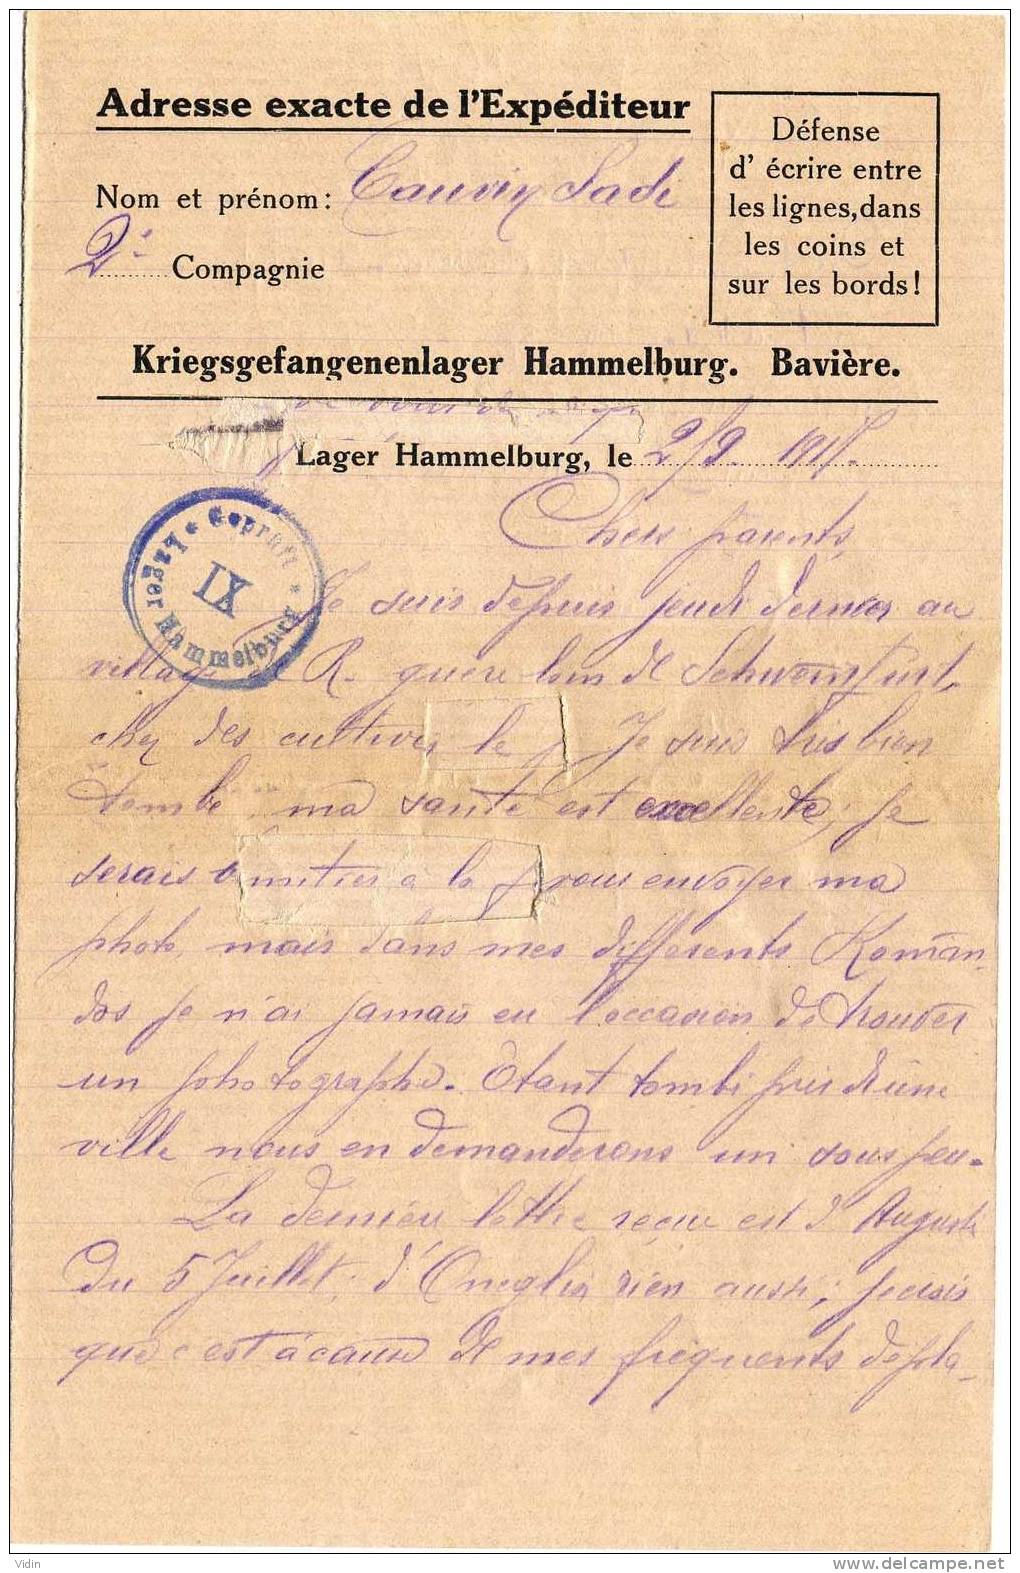 Adresse exacte de l'Expéditeur
Nom et prénom: Cauvin Sadi
2e Compagnie
Défense
d' écrire entre
les lignes, dans
les coins et
sur les bords!
Kriegsgefangenenlager Hammelburg. Bavière.
Lager Hammelburg, le 2/9. 191
Geprüft
IX
Lager Hammelburg
Chers parents,
Je suis depuis jeudi dernier au
village de R. guère loin de Schweinfurt,
chez des cultivateurs. Je suis très bien
tombé ma santé est excellente; je
serais à la vous envoyer ma
photo, mais dans mes différents Koman-
dos je n'ai jamais eu l'occasion de trouver
un photographe. Étant tombé près d'une
ville nous en demanderons un sous peu.
La dernière lettre reçue est d'Auguste
du 5 Juillet; d'Oneglia rien aussi; je crois
que c'est à cause de mes fréquents dépla-
Vidin
www.delcampe.net